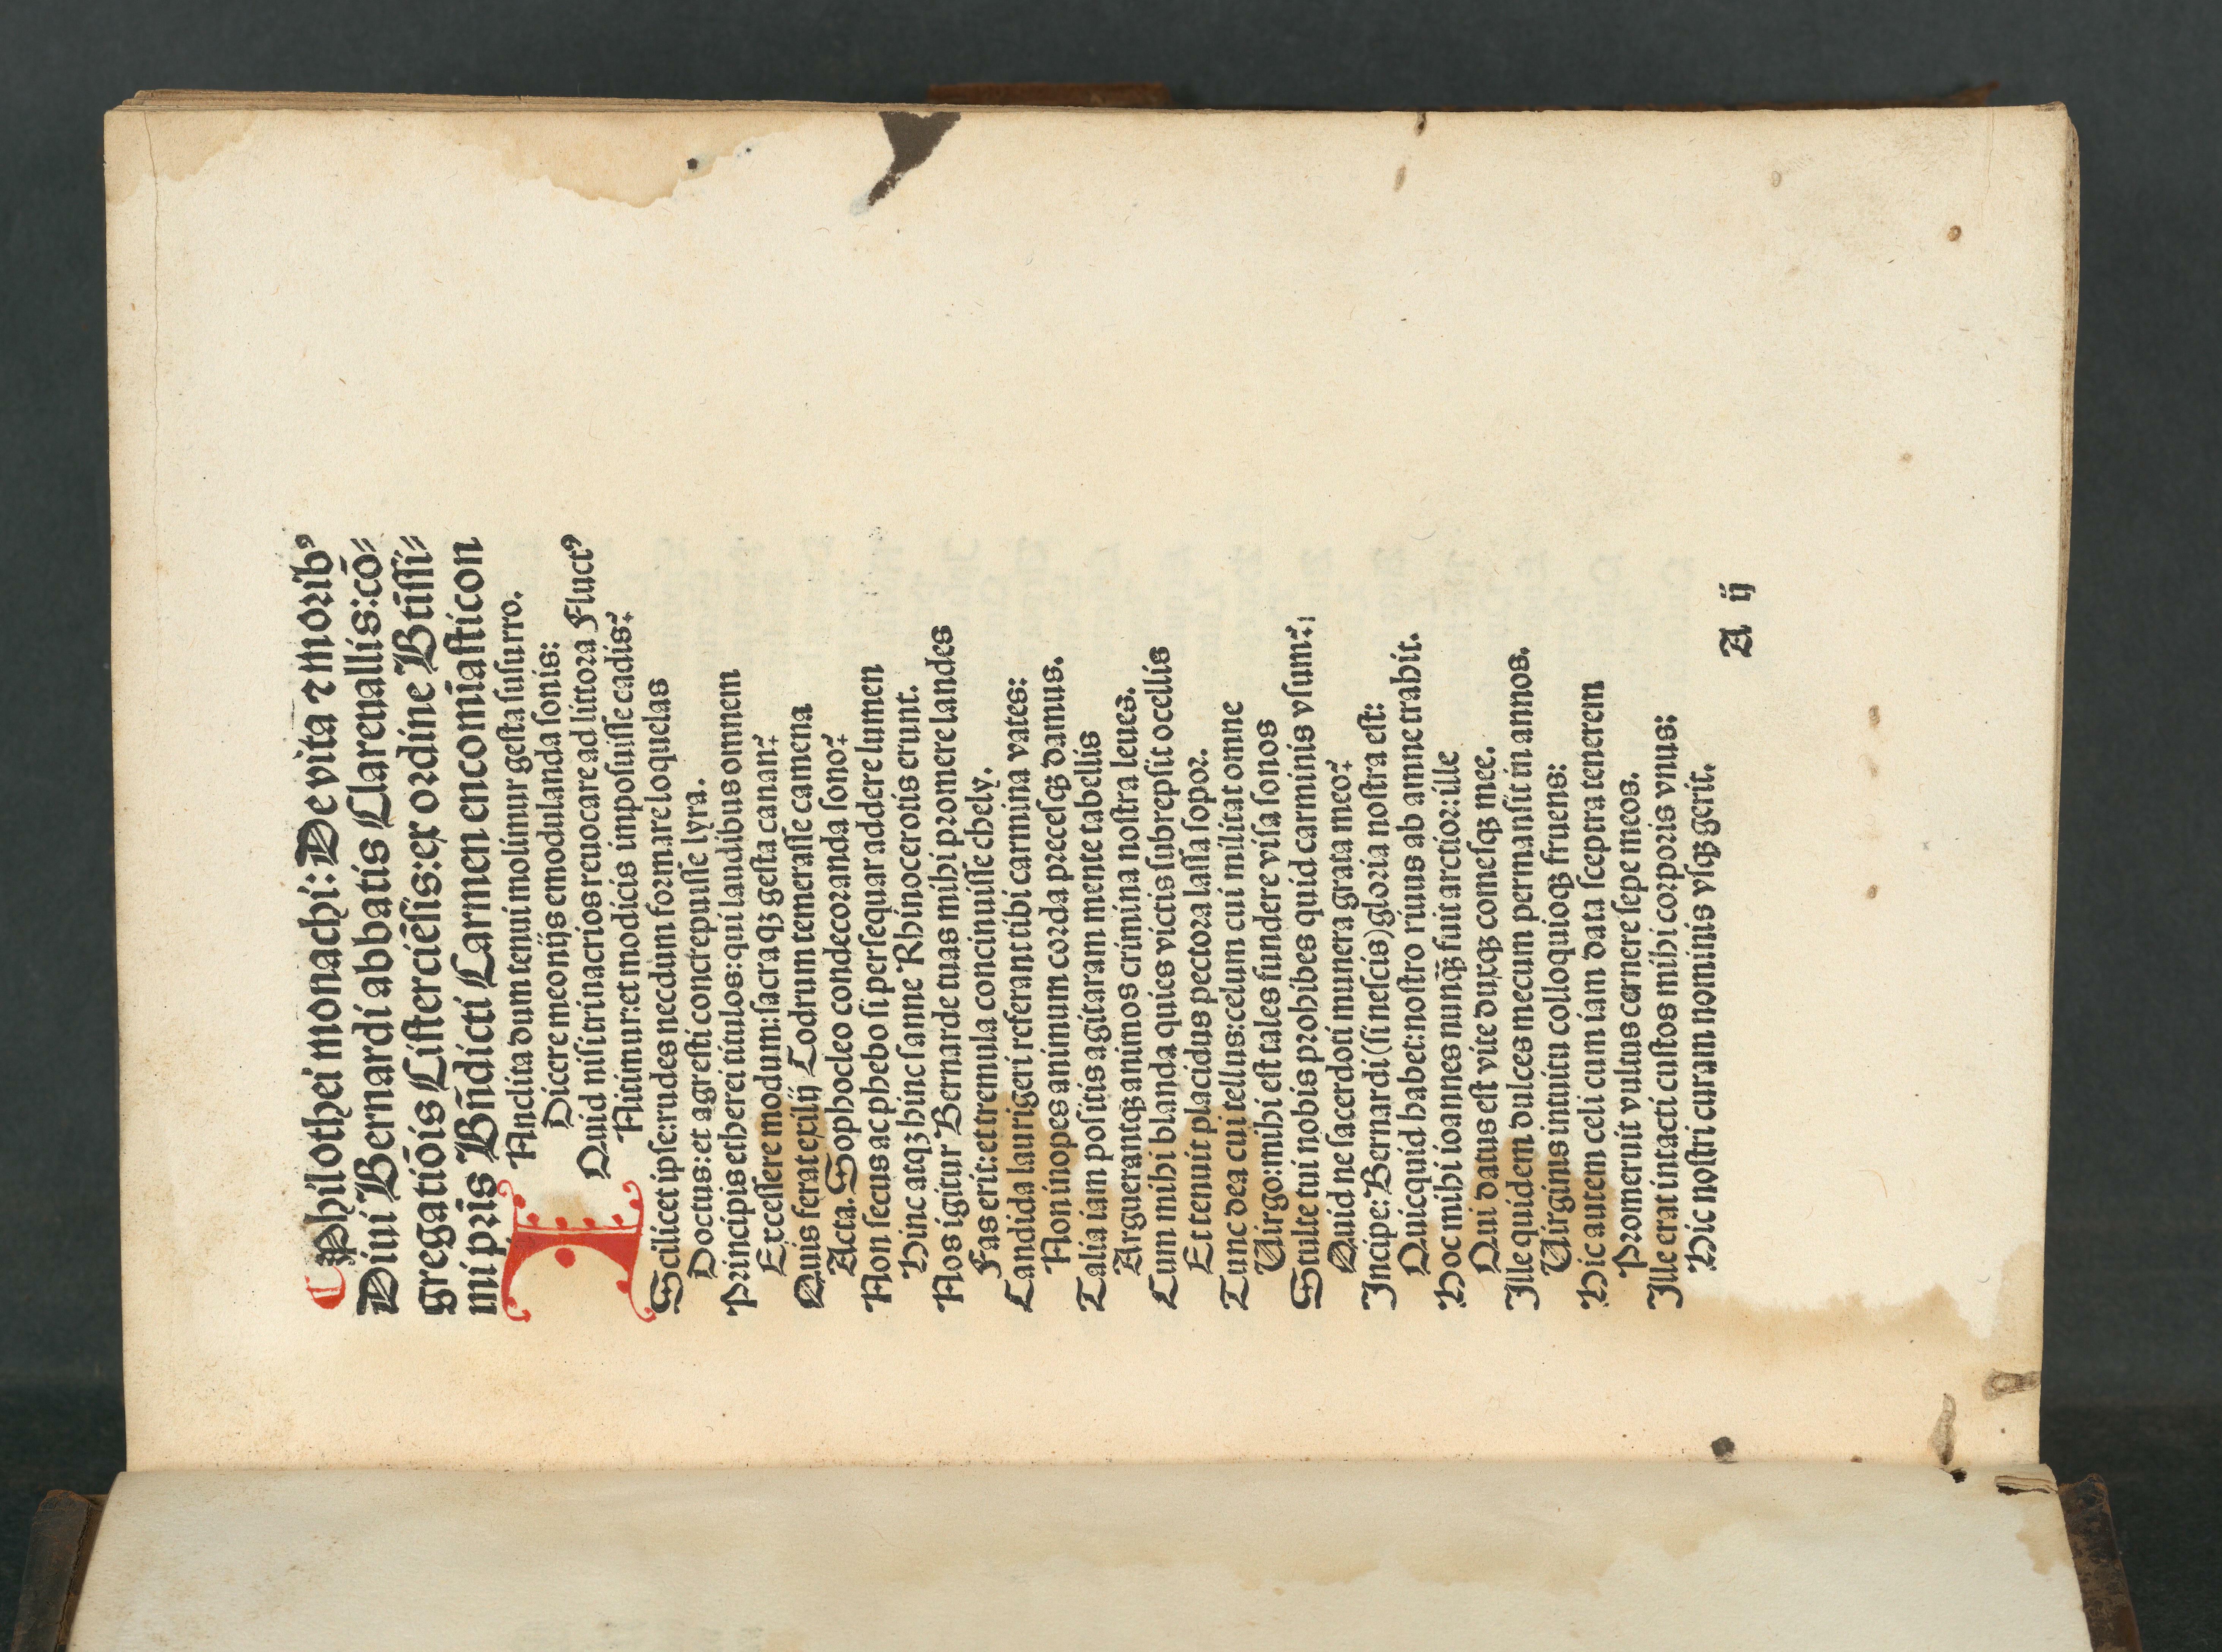 Philothei monachi: De vita ⁊ morib⁹
Diui Bernardi abbatis Clareuallis: cō⸗
gregatiōis Cisterciēsis: ex ordine Btissi⸗
mi pr̄is Bn̄dicti Carmen encomiasticon
INclita dum tenui molimur gesta susurro.
Dicere meonijs emodulanda sonis:
Quid nisi trinacrios reuocare ad littora Fluct⁹
Nitimur: et modicis imposuisse cadis?
Scilicet ipse: rudes necdum formare loquelas
Doctus: et agresti concrepuisse lyra.
Principis etherei titulos: qui laudibus omnem
Excessere modum: sacraqꝫ gesta canan?
Quis ferat exilij Codrum temerasse camena
Acta. Sophocleo condecoranda sono?
Non secus ac phebo si persequar addere lumen
Hinc atqꝫ hinc sanne Rhinocerotis erunt.
Nos igitur Bernarde tuas mihi promere landes
Fas erit: et tremula concinuisse chely.
Candida laurigeri referant tibi carmina vates:
Non inopes animum corda precesqꝫ damus.
Talia iam positis agitaram mente tabellis
Arguerantqꝫ animos crimina nostra leues.
Cum mihi blanda quies victis subrepsit ocellis
Et tenuit placidus pectora lassa sopor.
Tunc dea cui tellus: celum cui militat omne
Uirgo: mihi est tales fundere visa sonos
Stulte tui nobis prohibes quid carminis vsum?
Quid ne sacerdoti munera grata meo?
Incipe: Bernardi (si nescis) gloria nostra est:
Quicquid habet: nostro riuus ab amne trahit.
Hoc mihi ioannes nunqꝫ̄ fuit arctior: ille
Qui datus est vite duxqꝫ comesqꝫ mee.
Ille quidem dulces mecum permansit in annos.
Uirginis intuitu colloquioqꝫ fruens:
Hic autem celi cum iam data sceptra tenerem
Promeruit vultus cernere sepe meos.
Ille erat intacti custos mihi corporis vnus:
Hic nostri curam nominis vsqꝫ gerit.
A ij